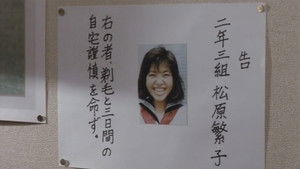 告
二年三組 松原繁子
右の者、剃毛と三日間の
自宅謹慎を命ず。